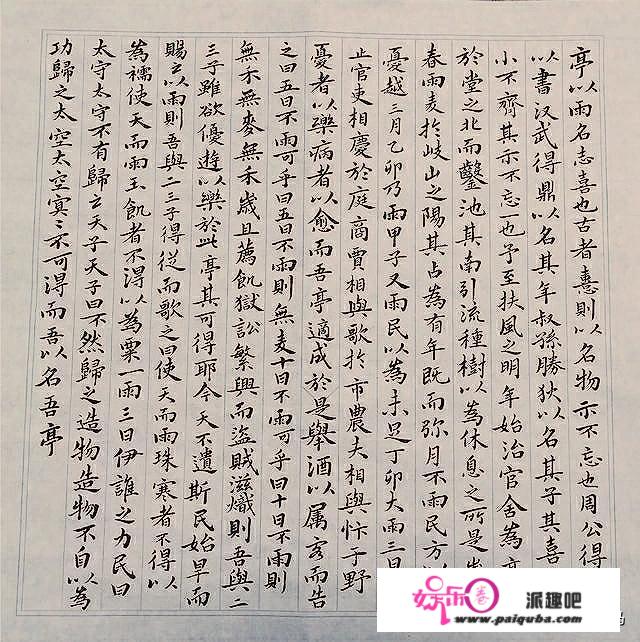 亭以雨名志喜也古者憙則以名物示不忘也周公得
以書汉武得鼎以名其年叔孫勝狄以名其子其喜
小不齊其示不忘一也予至扶風之明年始治官舍為
於堂之北而鑿池其南引流種樹以為休息之所是
春雨麦於岐山之陽其占為有年既而弥月不雨民方以
憂越三月乙卯乃雨甲子又雨民以為未足丁卯大雨三日
止官吏相慶於庭商賈相與歌於市農夫相與忭于野
憂者以樂病者以愈而吾亭適成於是舉酒以属客而告
之曰五日不雨可乎曰五日不雨則無麦十日不雨可乎曰十日不雨則
無禾無麥無禾歲且薦飢獄訟繁興而盜賊滋熾則吾與二
三子雖欲優遊以樂於此亭其可得耶今天不遺斯民始旱而
賜之以雨則吾與二三子得從而歌之曰使天而雨珠寒者不得以
為襦使天而雨玉飢者不得以為粟一雨三日伊誰之力民曰
太守太守不有歸之天子天子曰不然歸之造物造物不自以為
功歸之太空太空冥〻不可得而吾以名吾亭
娱乐卷
派趣吧
www.paiquba.com